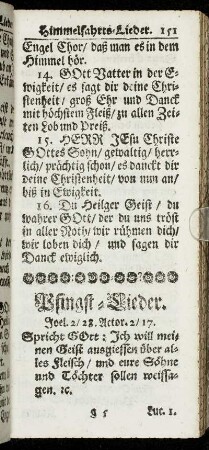 Himmelfahrts-Lieder. 151
Engel Chor/ daß man es in dem
Himmel hör.
14. GOtt Vatter in der E-
wigkeit/ es sagt dir deine Chri-
stenheit/ groß Ehr und Danck
mit höchstem Fleiß/ zu allen Zei-
ten Lob und Preiß.
15. HERR JEsu Christe
GOttes Sohn/ gewaltig/ herr-
lich/ prächtig schon/ es danckt dir
deine Christenheit/ von nun an/
biß in Ewigkeit.
16. Du Heilger Geist/ du
wahrer GOtt/ der du uns tröst
in aller Noth/ wir rühmen dich/
wir loben dich/ und sagen dir
Danck ewiglich.
Pfingst-Lieder.
Joel. 2/ 28. Actor. 2/ 17.
Spricht GOtt: Ich will mei-
nen Geist ausgiessen über al-
les Fleisch/ und eure Söhne
und Töchter sollen weissa-
gen. ꝛc.
g 5 Luc. 1.